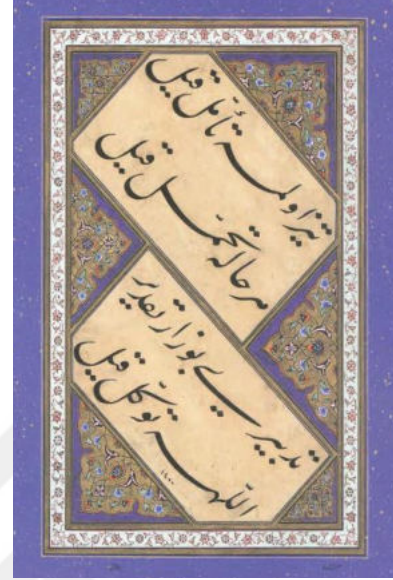 تیز اولمه تأمّل قیل
هر حاله تحمّل قیل
تدبیری بوزار تقدیر
اللّهه توکّل قیل